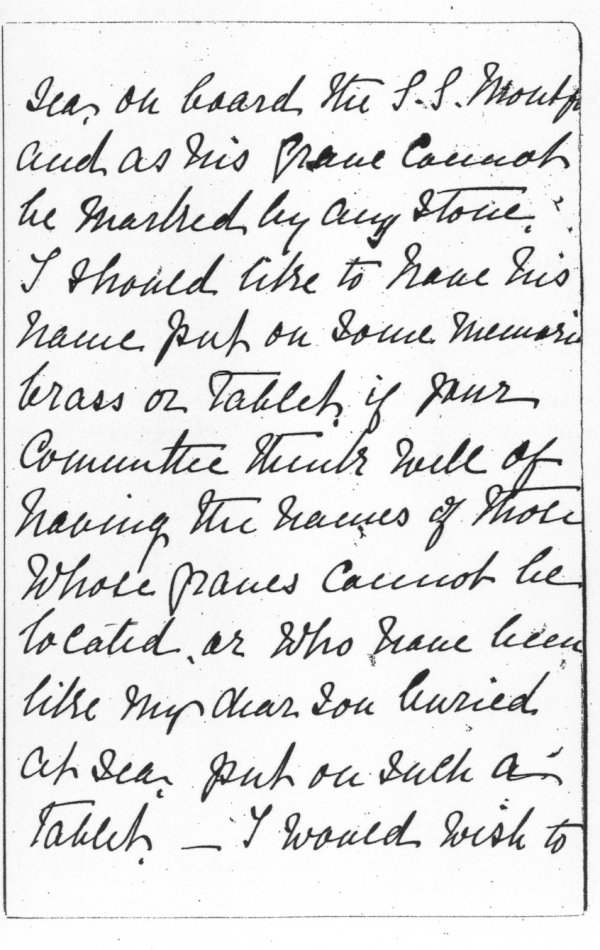 sea, on board the S.S. Montf
and as his grave cannot
be marked by any stone,
I should like to have his
name put on some memori
brass or tablet, if your
Committee think well of
having the names of those
whose graves cannot be
located, or who have been
like my dear son buried
at sea, put on such a
tablet, — I would wish to